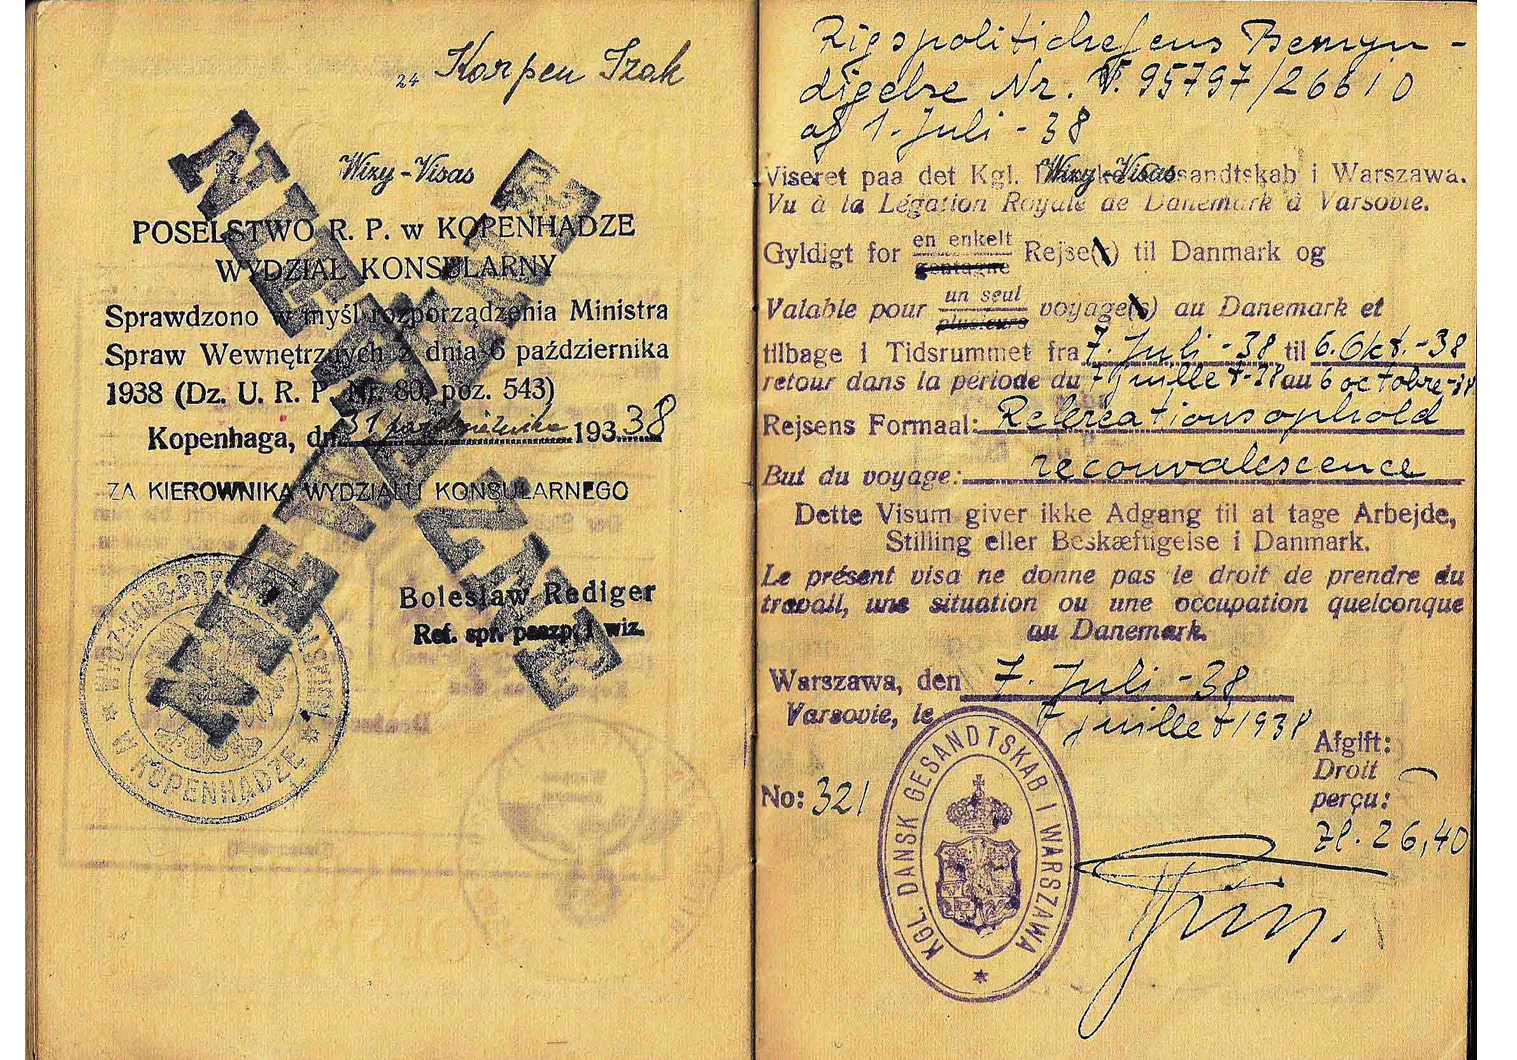 24 Korpen Izak
Wizy-Visas
POSELSTWO R. P. w KOPENHADZE
WYDZIAŁ KONSULARNY
Sprawdzono w myśl rozporządzenia Ministra
Spraw Wewnętrznych z dnia 6 października
1938 (Dz. U. R. P. Nr. 80, poz. 543)
Kopenhaga, dn. 31 października 1938
ZA KIEROWNIKA WYDZIAŁU KONSULARNEGO
Bolesław Rediger
Ref. spr. paszp. i wiz.
NIEWAŻNE
NIEWAŻNE
W KOPENHADZE
Rigspolitichefens Bemyn-
digelse Nr. V. 95797/26610
af 1. Juli - 38
Wizy-Visas
Viseret paa det Kgl. Danske Gesandtskab i Warszawa.
Vu à la Légation Royale de Danemark à Varsovie.
Gyldigt for en enkelt gentagne Rejse( ) til Danmark og
Valable pour un seul plusieurs voyage(s) au Danemark et
tilbage i Tidsrummet fra 7. Juli - 38 til 6. Okt. - 38
retour dans la période du 7 juillet - 38 au 6 octobre - 38
Rejsens Formaal: Rekreationsophold
But du voyage: reconvalescence
Dette Visum giver ikke Adgang til at tage Arbejde,
Stilling eller Beskæftigelse i Danmark.
Le présent visa ne donne pas le droit de prendre du
travail, une situation ou une occupation quelconque
au Danemark.
Warszawa, den 7. Juli - 38
Varsovie, le 7 juillet 1938
Afgift:
Droit
perçu:
Zl. 26,40
No: 321
KGL. DANSK GESANDTSKAB I WARSZAWA